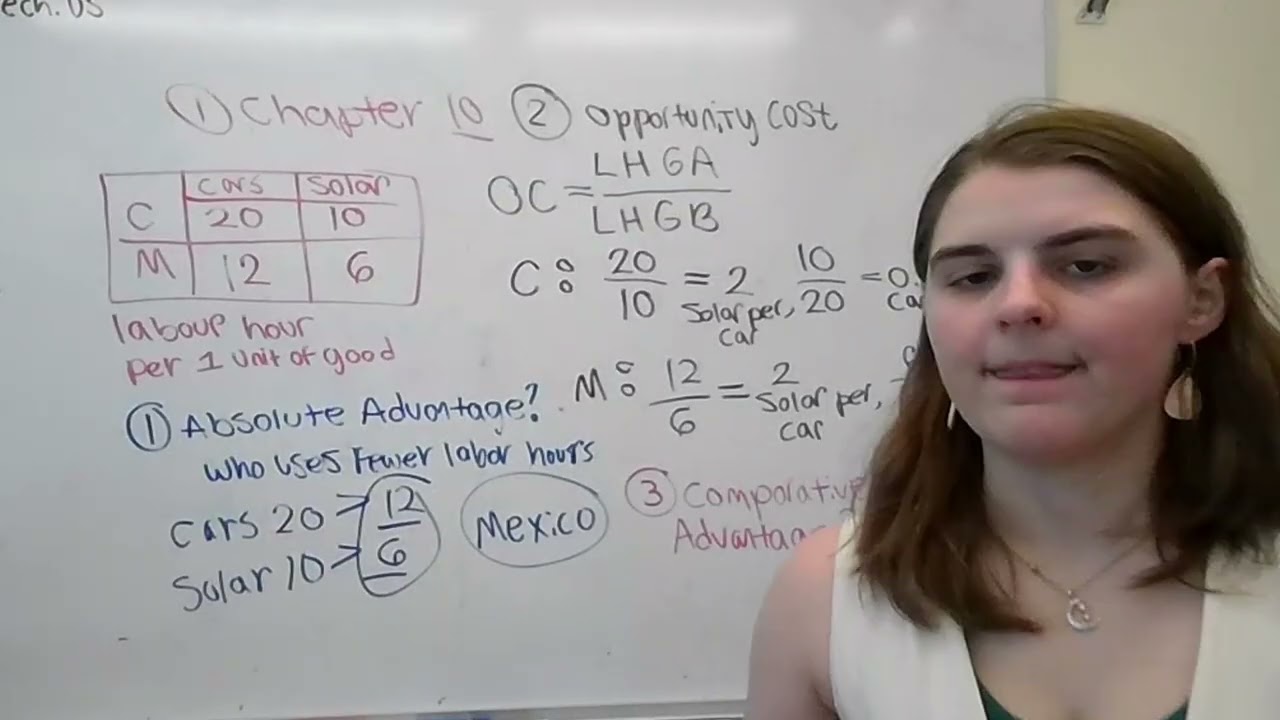 ech.US
① Chapter 10
cars solar
C 20 10
M 12 6
labour hour
per 1 unit of good
① Absolute Advantage?
who uses Fewer labor hours
cars 20 > 12
Solar 10 > 6
Mexico
② opportunity cost
OC = LHGA
LHGB
C: 20/10 = 2 Solar per, car 10/20 = 0.
M: 12/6 = 2 Solar per, car
③ Comparative
Advantag